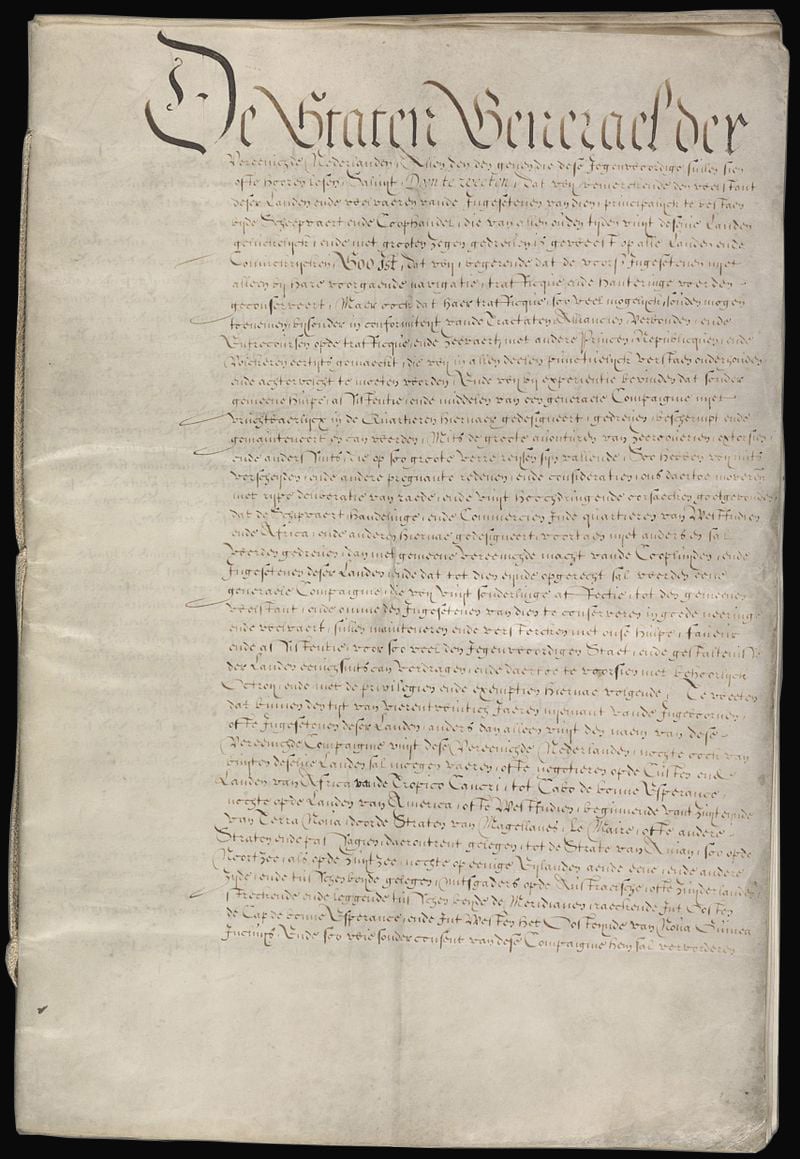 De Staten Generael der
Vereenichde Nederlanden, Allen den genen die dese Jegenwoordige sullen sien
ofte hooren lesen, Saluyt, Doen te weeten, Dat wy bemerckende den welstant
deser Landen ende welvaeren vande Ingesetenen van dien principalyck te bestaen
byde Scheepvaert ende Coophandel, die van allen ouden tyden vuyt deselve Landen
geluckelyck, ende met grooten zegen gedreven is geweest op alle Landen ende
Coninckrycken, Soo Ist, dat wy, begerende dat de voors. Ingesetenen niet
alleen by hare voorgaende navigatie, traffique, ende hanteringe worden
geconserveert, Maer oock dat haer traffique, soo veel mogelyck, souden mogen
toenemen, bysonder in conformiteyt vande Tractaten, Alliancien, Verbonden, ende
Entrecoursen opde traffique, ende Zeevaert, met andere Princen, Republicquen, ende
Volckeren eertyts gemaeckt, die wy in allen deelen punctuelyck verstaen onderhouden
ende achtervolcht te moeten worden, Ende wy by experientie bevinden dat sonder
gemeene hulpe, assistentie, ende middelen van een generaele Compaignie niet
vruchtbaerlyck in de Quartieren hiernaer gedesigneert, gedreven, beschermpt ende
gemainteneert en can werden, Mits de groote avonturen van zeerooverien, extorsien
ende andersints, die op soo groote verre reysen syn vallende, Soo hebben wy mits
verscheyden, ende andere pregnante redenen, ende consideratien, ons daertoe moverende
met rype deliberatie van raede, ende vuyt hoochdringende oorsaecken goetgevonden
dat de Schipvaert, handelinge, ende Commercien Inde quartieren van WestIndien
ende Africa, ende anderen hiernae gedesigneert, voortaen niet anders en sal
worden gedreven, dan met gemeene vereenichde macht vande Cooplieden, ende
Ingesetenen deser Landen, ende dat tot dien eynde opgerecht sal worden eene
generaele Compaignie, die wy vuyt sonderlinge affectie, tot den gemeenen
welstant, ende omme den Ingesetenen van dien te conserveren in goede neeringe
ende welvaert, sullen mainteneren ende verstercken met onse hulpe, faveur
ende assistentie, voor soo veel den Jegenwoordigen Staet, ende gestaltenis
der Landen eenichsints can verdragen, ende daertoe te voorsien met behoorlyck
Octroy, ende met de privilegien ende exemptien hiernae volgende, Te weeten
dat binnen den tyt van vierentwintich Jaeren niemant vande Ingeboornen,
ofte Ingesetenen deser Landen, anders dan alleen vuyt den naem van dese
Vereenichde Compaignie vuyt dese Vereenichde Nederlanden, nochte oock van
buyten deselve Landen sal moegen vaeren, ofte negotieren opde Custen ende
Landen van Africa vande Tropico Cancri, tot Cabo de bonne Esperance,
nochte opde Landen van America, ofte WestIndien, beginnende vant zuyteynde
van Terra Nova, doorde Straten van Magellanes, Le Maire, ofte andere
Straten ende passagien, daerontrent gelegen, tot de Strate van Anian, soo opde
Noort Zee, als opde zuyt Zee, nochte op eenige Eylanden aende eene, ende andere
zyde, ende tusschen beyde gelegen, mitsgaders opde Australsche, ofte zuyderlanden
streckende ende leggende tusschen beyde de Meridianen, raeckende Int Oosten
de Cap de bonne Esperance, ende Int Westen het Oosteynde van Nova Guinea
Incluys. Ende soo wie sonder consent van dese Compaignie hem sal vervorderen